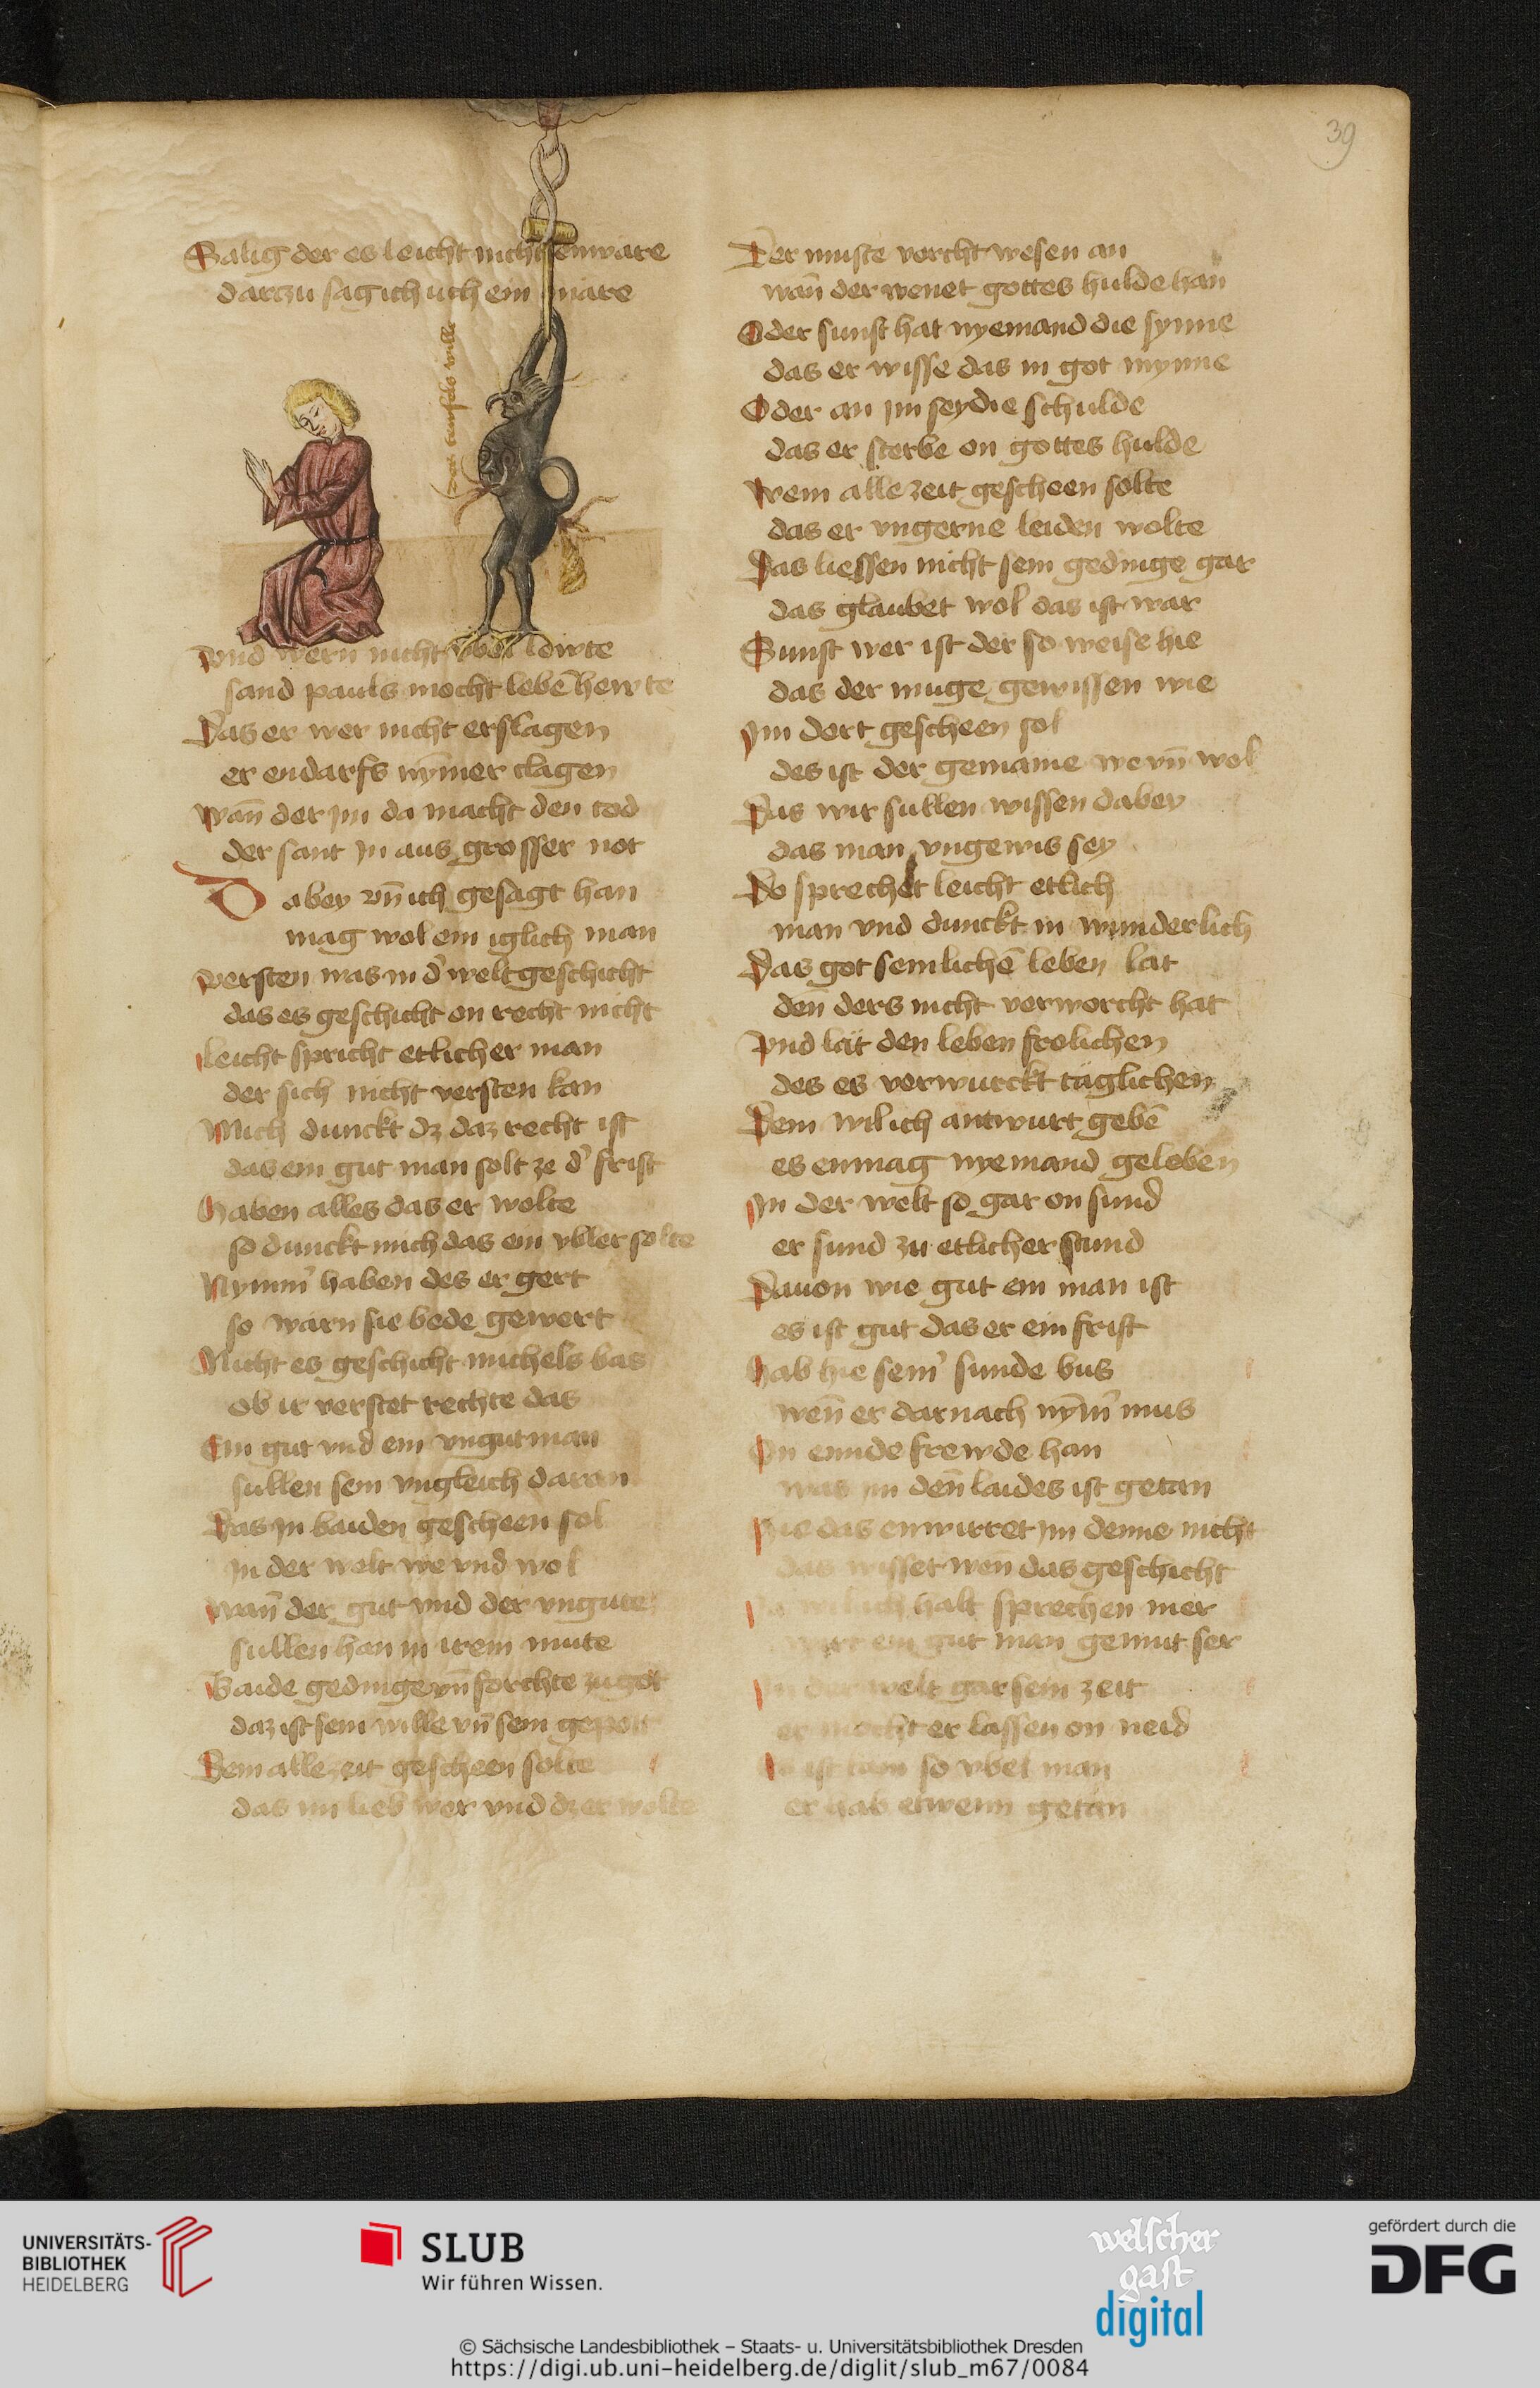 39
Salig der es leicht nicht enware
darzu sag ich uch ein mare
des teufels wille
Vnd wern nicht vbel lewte
sand pauls mocht lebē hewte
Das er wer nicht erslagen
er endarfs nȳmer clagen
Wañ der jm da macht den tod
der sant jn aus grosser not
Dabey vñ ich gesagt han
mag wol ein iglich man
Versten was in d' welt geschicht
das es geschicht on recht nicht
Leicht spricht etlicher man
der sich nicht versten kan
Mich dunckt dz daz recht ist
das ein gut man solt ze d' frist
Haben alles das er wolte
so dunckt mich das ein vbler solte
Nymm' haben des er gert
so warn sie bede gewert
Nicht es geschicht michels bas
ob ir verstet rechte das
Ein gut vnd ein vngut man
sullen sein vngleich daran
Das jn baiden gescheen sol
jn der welt we vnd wol
Wañ der gut vnd der vngute
sullen han in irem mute
Baide gedinge vñ forchte zu got
daz ist sein wille vñ sein gepott
Dem alle zeit gescheen solte
das im lieb wer vnd dz er wolte
Der muste vorcht wesen an
wañ der wenet gottes hulde han
Oder sunst hat nyemand die synne
das er wisse das in got mynne
Oder an jm sey die schulde
das er sterbe on gottes hulde
Wem alle zeit gescheen solte
das er vngerne leiden wolte
Das liessen nicht sein gedinge gar
das glaubet wol das ist war
Sunst wer ist der so weise hie
das der muge gewissen wie
Jm dort gescheen sol
des ist der gemaine we vñ wol
Das wir sullen wissen dabey
das man vngewis sey
Do sprechet leicht etlich
man vnd dunckt in wunderlich
Das got semlichē leben lat
deñ ders nicht verworcht hat
Vnd lät den leben frolichen
des es verwurckt täglichen
Dem wil ich antwurt gebē
es enmag nyemand geleben
Jn der welt so gar on sund
er sund zu etlicher stund
Dauon wie gut ein man ist
es ist gut das er ein frist
Hab hie sein' sunde bus
weñ er darnach nȳm' mus
On ennde frewde han
was jm deñ laides ist getan
Hie das enwirret jm denne nicht
das wisset weñ das geschicht
wil ich halt sprechen mer
wart ein gut man gemut ser
Jn der welt gar sein zeit
er mocht er lassen on neid
ist kain so vbel man
er hab etwenn getan
UNIVERSITÄTS-
BIBLIOTHEK
HEIDELBERG
SLUB
Wir führen Wissen.
welscher
gast
digital
gefördert durch die
DFG
© Sächsische Landesbibliothek – Staats- u. Universitätsbibliothek Dresden
https://digi.ub.uni-heidelberg.de/diglit/slub_m67/0084